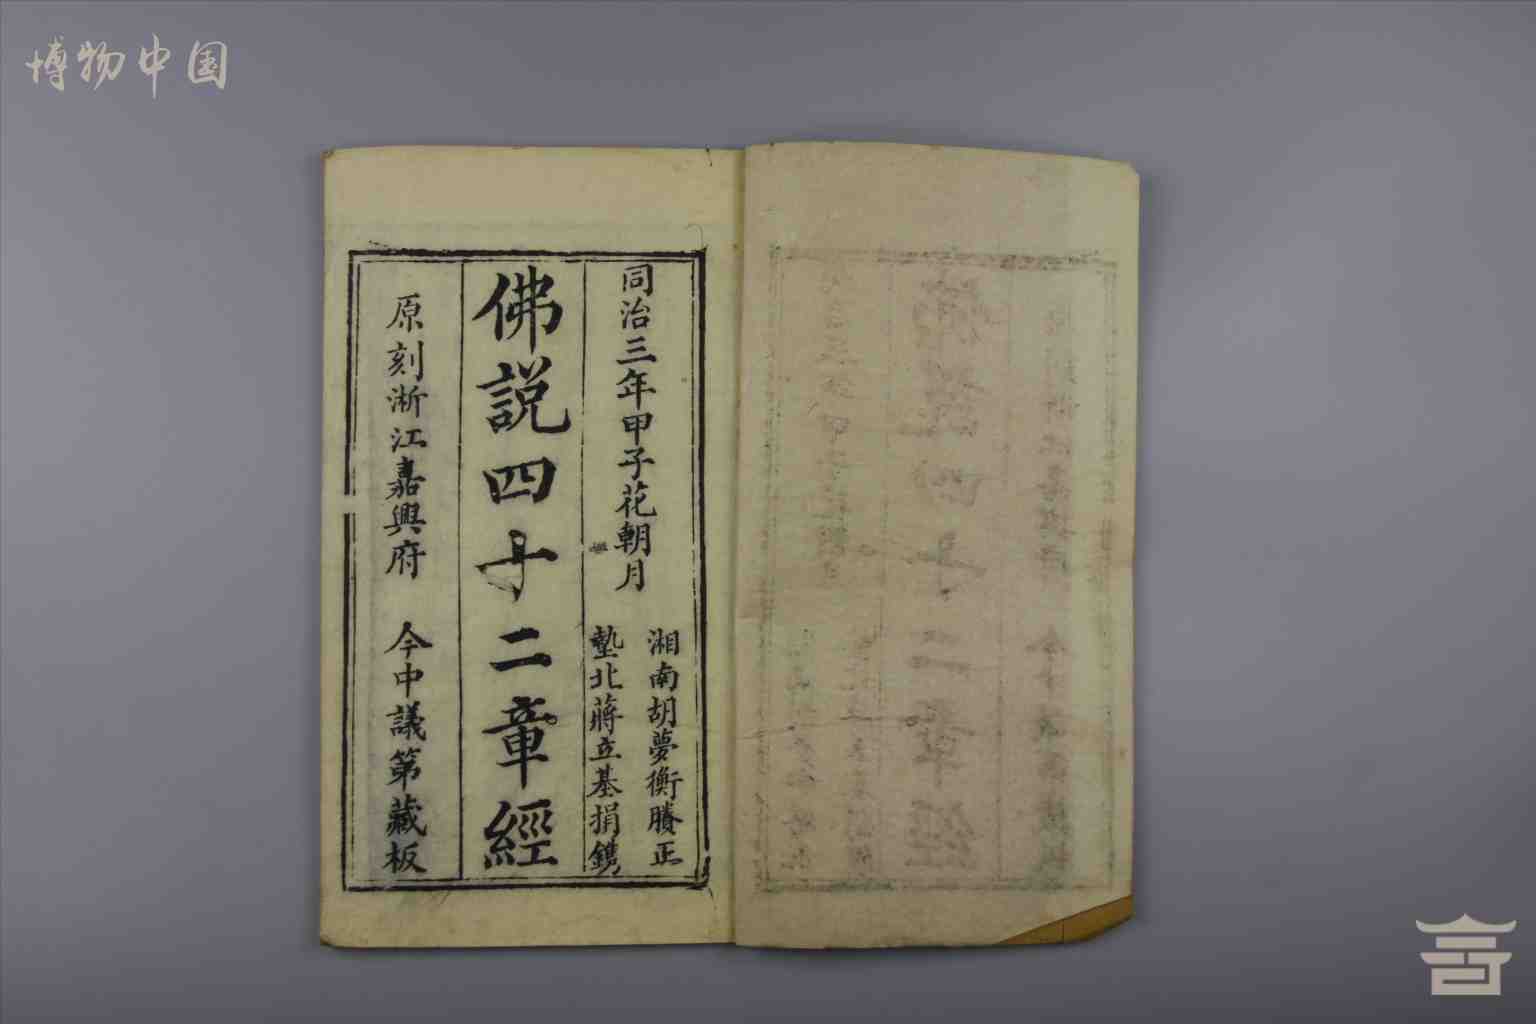 博物中国
同治三年甲子花朝月
湘南胡夢衡謄正
墊北蔣立基捐鐫
佛説四十二章經
原刻淅江嘉興府 今中議第藏板